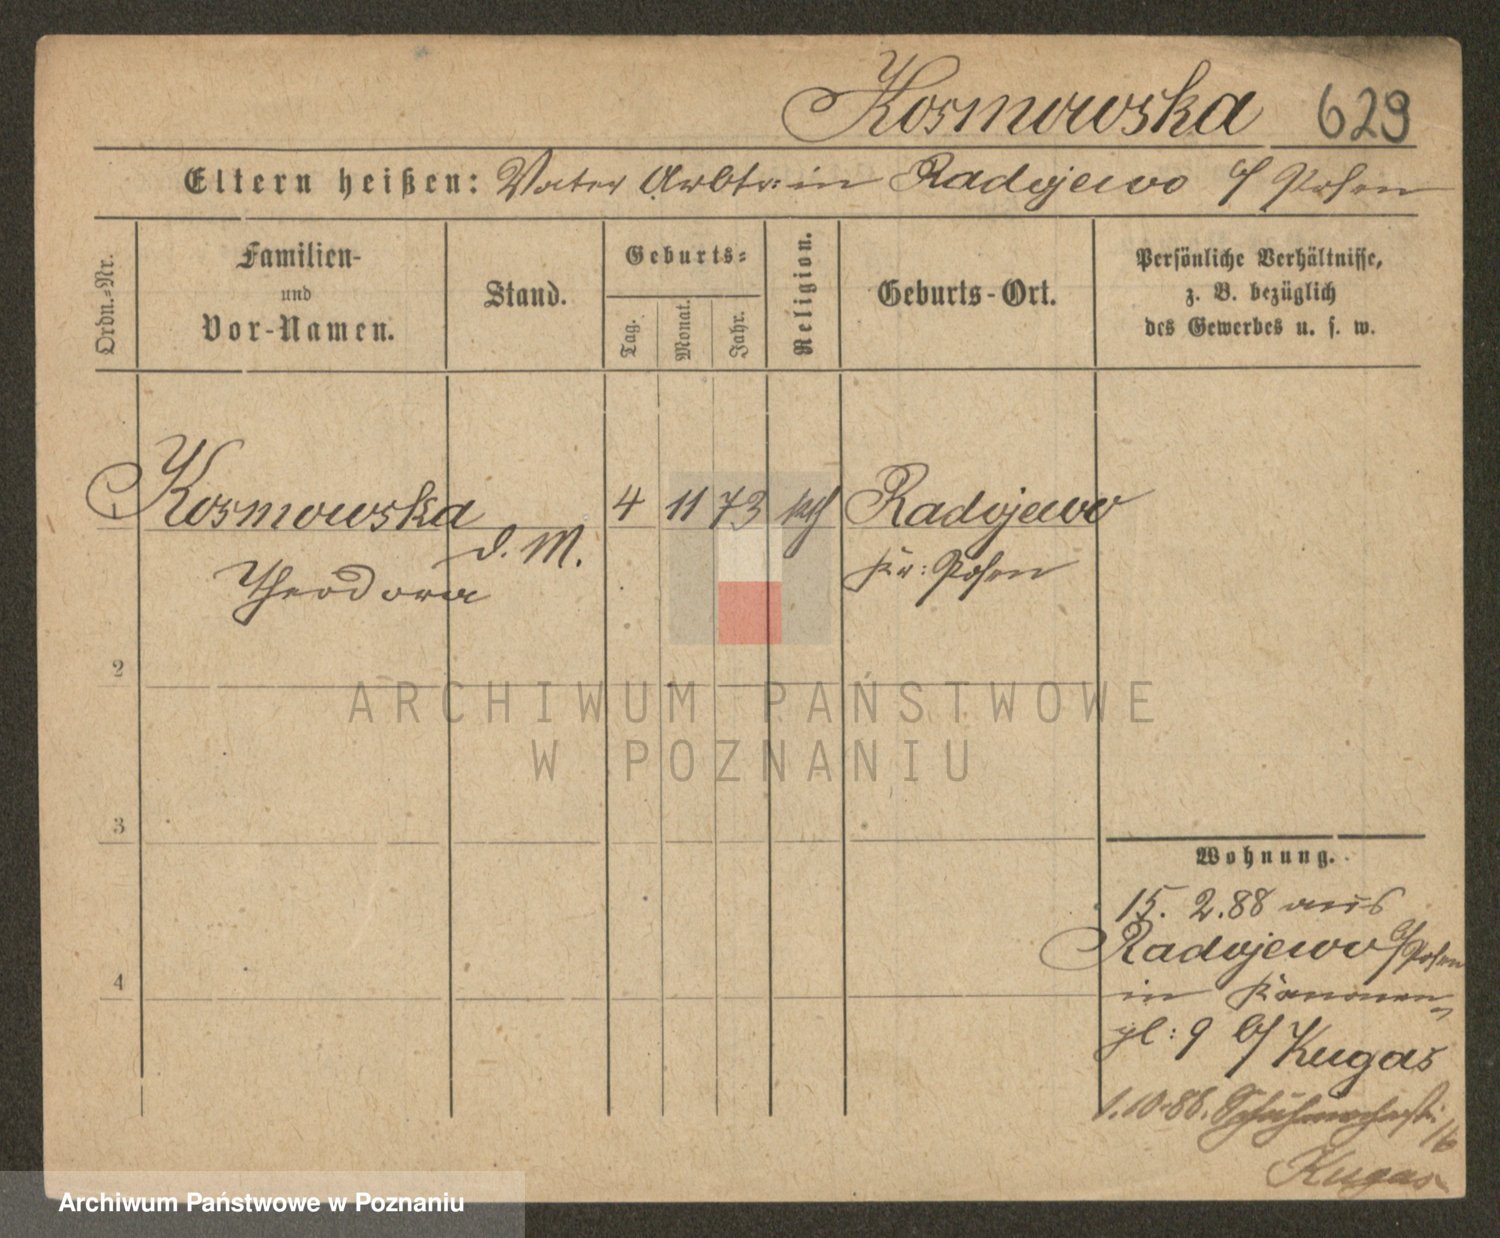 Kosmowska 629
Eltern heißen: Vater Arbtr: in Radojewo b/ Posen
Ordn.=Nr.
Familien-
und
Vor-Namen.
Stand.
Geburts=
Tag.
Monat.
Jahr.
Religion.
Geburts-Ort.
Persönliche Verhältnisse,
z. B. bezüglich
des Gewerbes u. s. w.
1 Kosmowska 4 11 73 kth Radojewo
d. M.
Theodora Kr: Posen
2
ARCHIWUM PAŃSTWOWE
W POZNANIU
3
Wohnung.
15. 2.88 aus
Radojewo b/Posen
4
in Kanonen-
pl: 9 b/ Kugas
1.10.88. Schuhmacherstr.
16
Kugas
Archiwum Państwowe w Poznaniu